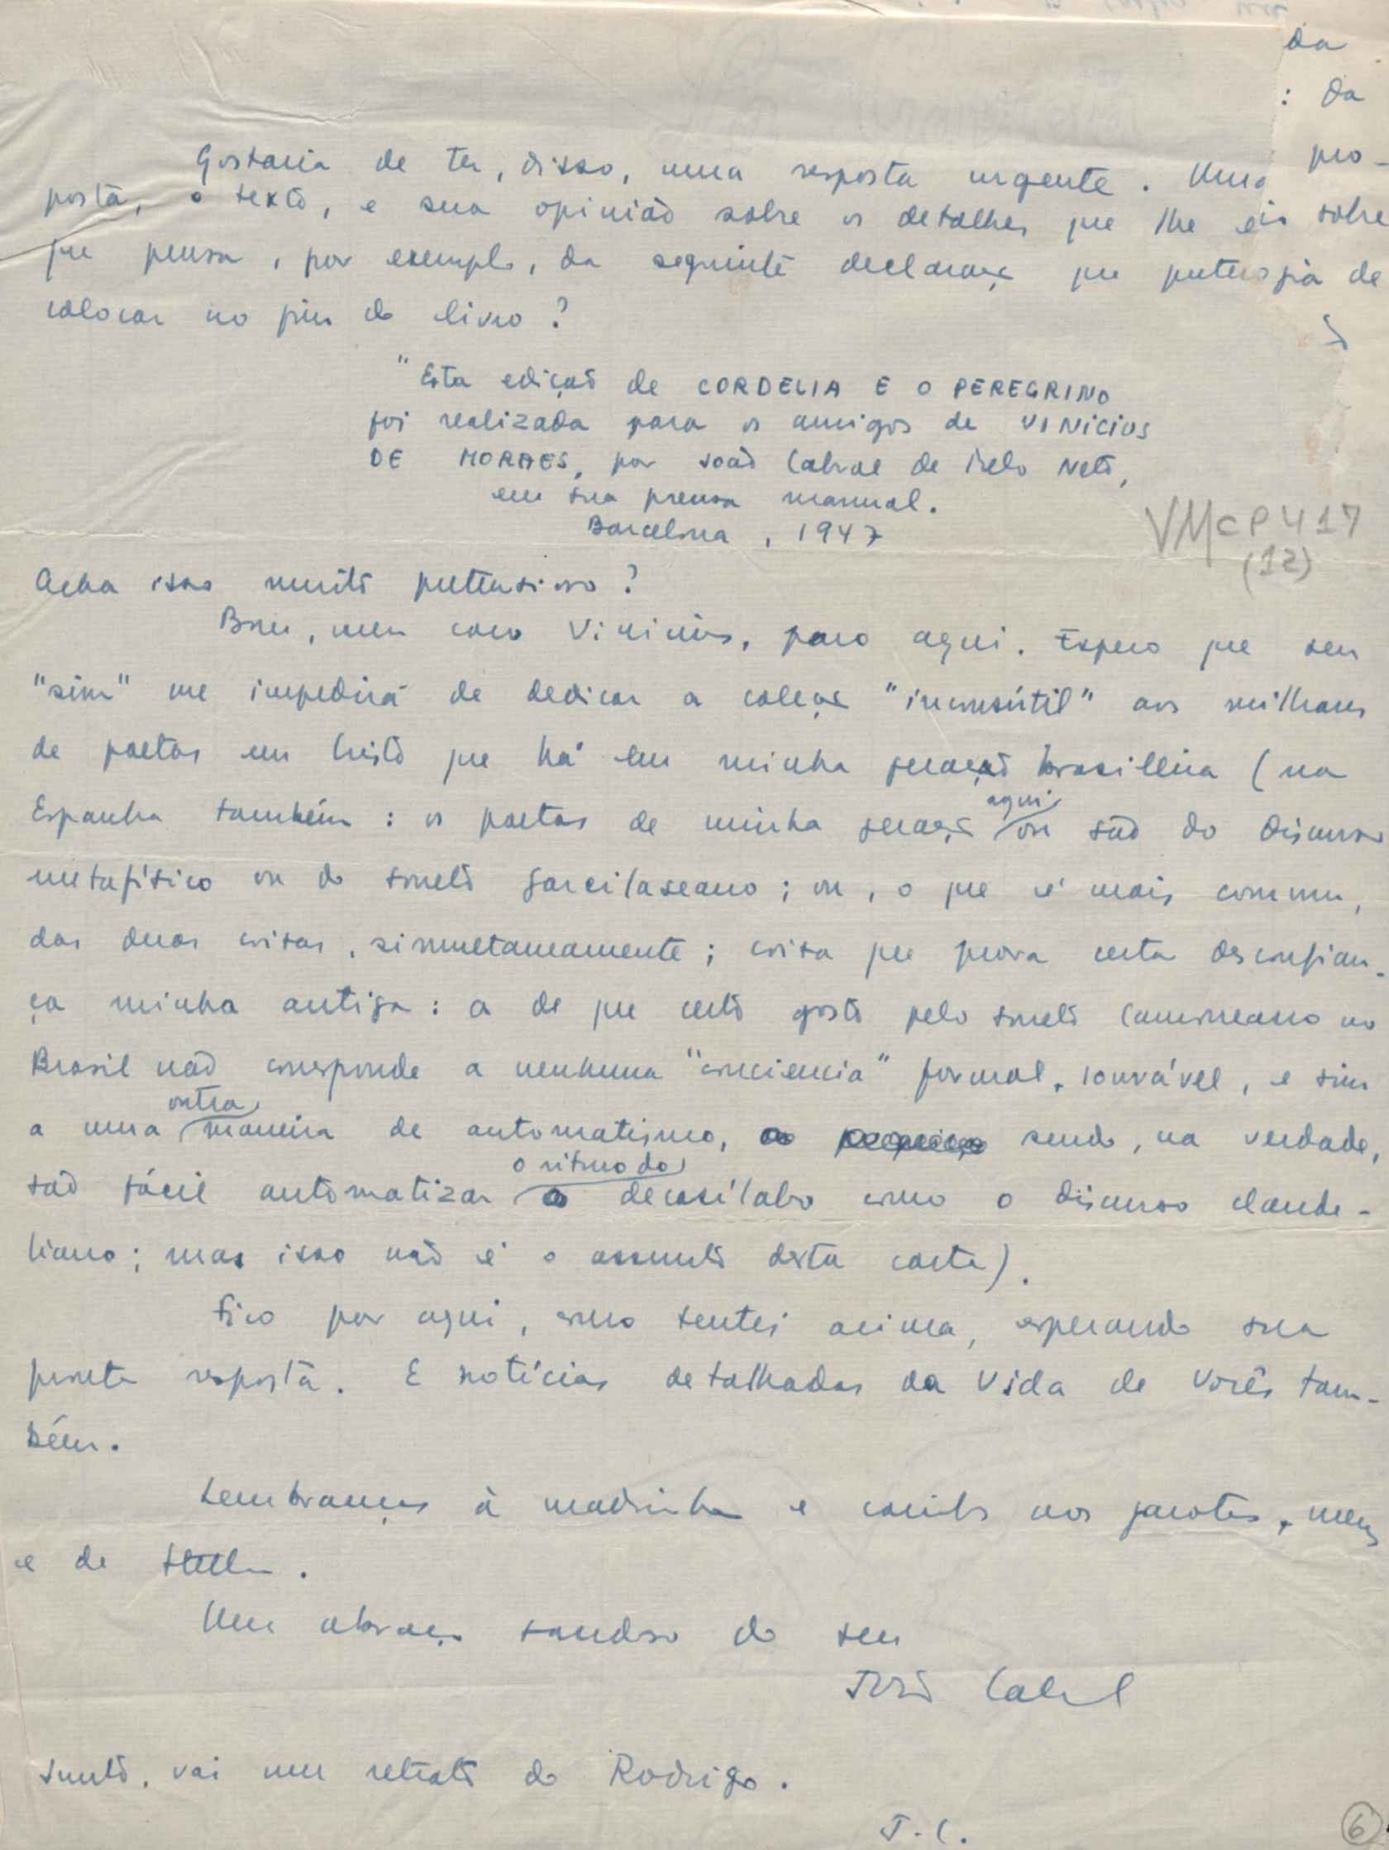 da
: da
Gostaria de ter, disso, uma resposta urgente. Uma pro-
posta, o texto, e sua opinião sobre os detalhes que lhe sobre
que pensa, por exemplo, da seguinte declaraç que de
colocar no fim do livro?
"Esta edição de CORDELIA E O PEREGRINO
foi realizada para os amigos de VINICIUS
DE MORAES, por João Cabral de Melo Neto,
em sua prensa manual.
Barcelona, 1947
VMCP417
(12)
Acha isso muito pretensioso?
Bom, meu caro Vinicius, paro aqui. Espero que seu
"sim" me impedirá de dedicar a coleção "inconsútil" aos milhares
de poetas em Cristo que há em minha geração brasileira (na
Espanha também: os poetas de minha geração aqui ou são do discurso
metafísico ou do soneto garcilaseano; ou, o que é mais commum,
das duas coisas, simultaneamente; coisa que prova certa desconfian-
ça minha antiga: a de que certo gosto pelo soneto camoneano no
Brasil não corresponde a nenhuma "conciencia" formal, louvável, e sim
a uma outra maneira de automatismo, sendo, na verdade,
tão fácil automatizar o ritmo do decasílabo como o discurso claude-
liano; mas isso não é o assunto desta carta).
Fico por aqui, como tentei acima, esperando sua
pronta resposta. E notícias detalhadas da vida de vocês tam-
bém.
Lembranças à madrinha e carinhos aos garotos, meus
e de Stella.
Um abraço saudoso do seu
João Cabral
Junto, vai um retrato do Rodrigo.
J.C.
6